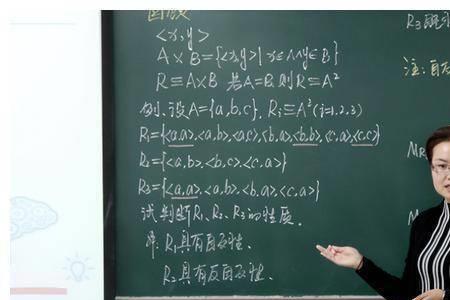 <x,y>
A×B={<x,y>|x∈A∧y∈B}
R≡A×B 若A=B,则R≡A²
例、设A={a,b,c}, Ri≡A²(i=1,2,3)
R₁={<a,a>,<a,b>,<a,c>,<b,a>,<b,b>,<c,a>,<c,c>}
R₂={<a,b>,<b,c>,<c,a>}
R₃={<a,a>,<a,b>,<b,a>,<c,a>}
试判断R₁、R₂、R₃的性质。
解:R₁具有自反性、
R₂具有反自反性、
R₃
注:自反
MR
M